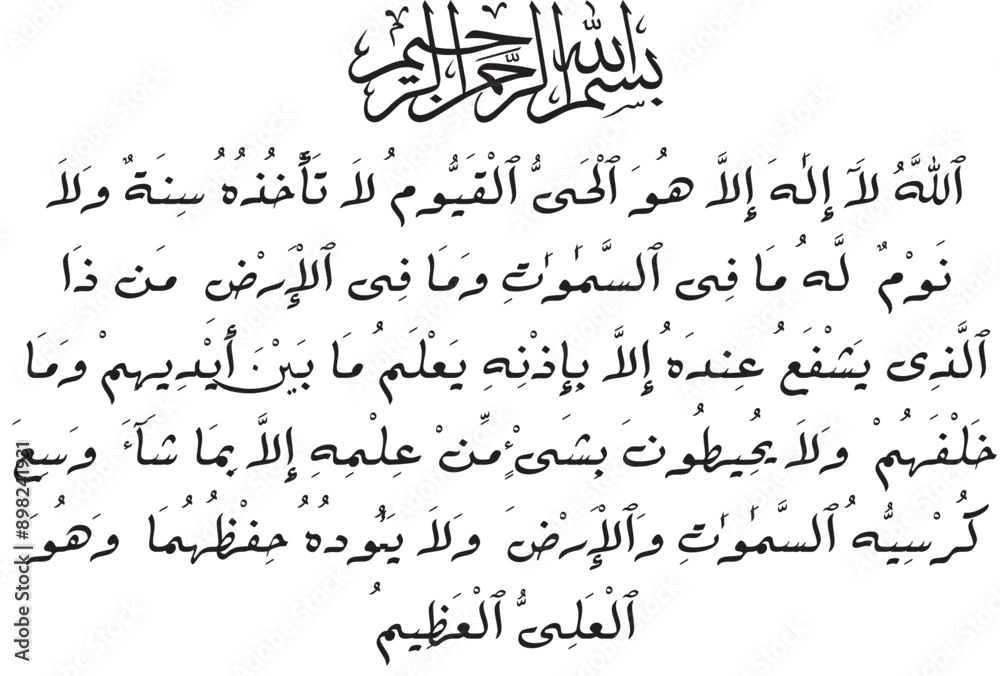 بسم الله الرحمن الرحيم
ٱللَّهُ لَآ إِلَٰهَ إِلَّا هُوَ ٱلْحَىُّ ٱلْقَيُّومُ لَا تَأْخُذُهُۥ سِنَةٌ وَلَا
نَوْمٌ لَّهُۥ مَا فِى ٱلسَّمَٰوَٰتِ وَمَا فِى ٱلْأَرْضِ مَن ذَا
ٱلَّذِى يَشْفَعُ عِندَهُۥ إِلَّا بِإِذْنِهِ يَعْلَمُ مَا بَيْنَ أَيْدِيهِمْ وَمَا
خَلْفَهُمْ وَلَا يُحِيطُونَ بِشَىْءٍ مِّنْ عِلْمِهِ إِلَّا بِمَا شَآءَ وَسِعَ
كُرْسِيُّهُ ٱلسَّمَٰوَٰتِ وَٱلْأَرْضَ وَلَا يَـُٔودُهُۥ حِفْظُهُمَا وَهُوَ
ٱلْعَلِىُّ ٱلْعَظِيمُ
Adobe Stock | #898241931
Adobe Stock